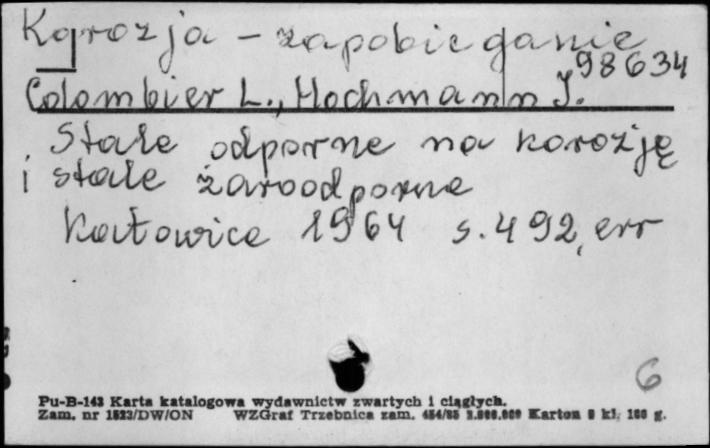 Korozja - zapobieganie
98634
Colombier L., Hochmann J.
Stale odporne na korozję
i stale żaroodporne
Katowice 1964 s. 492, err
6
Pu-B-143 Karta katalogowa wydawnictw zwartych i ciągłych.
Zam. nr 1523/DW/ON WZGraf Trzebnica zam. Karton kl. 180 g.